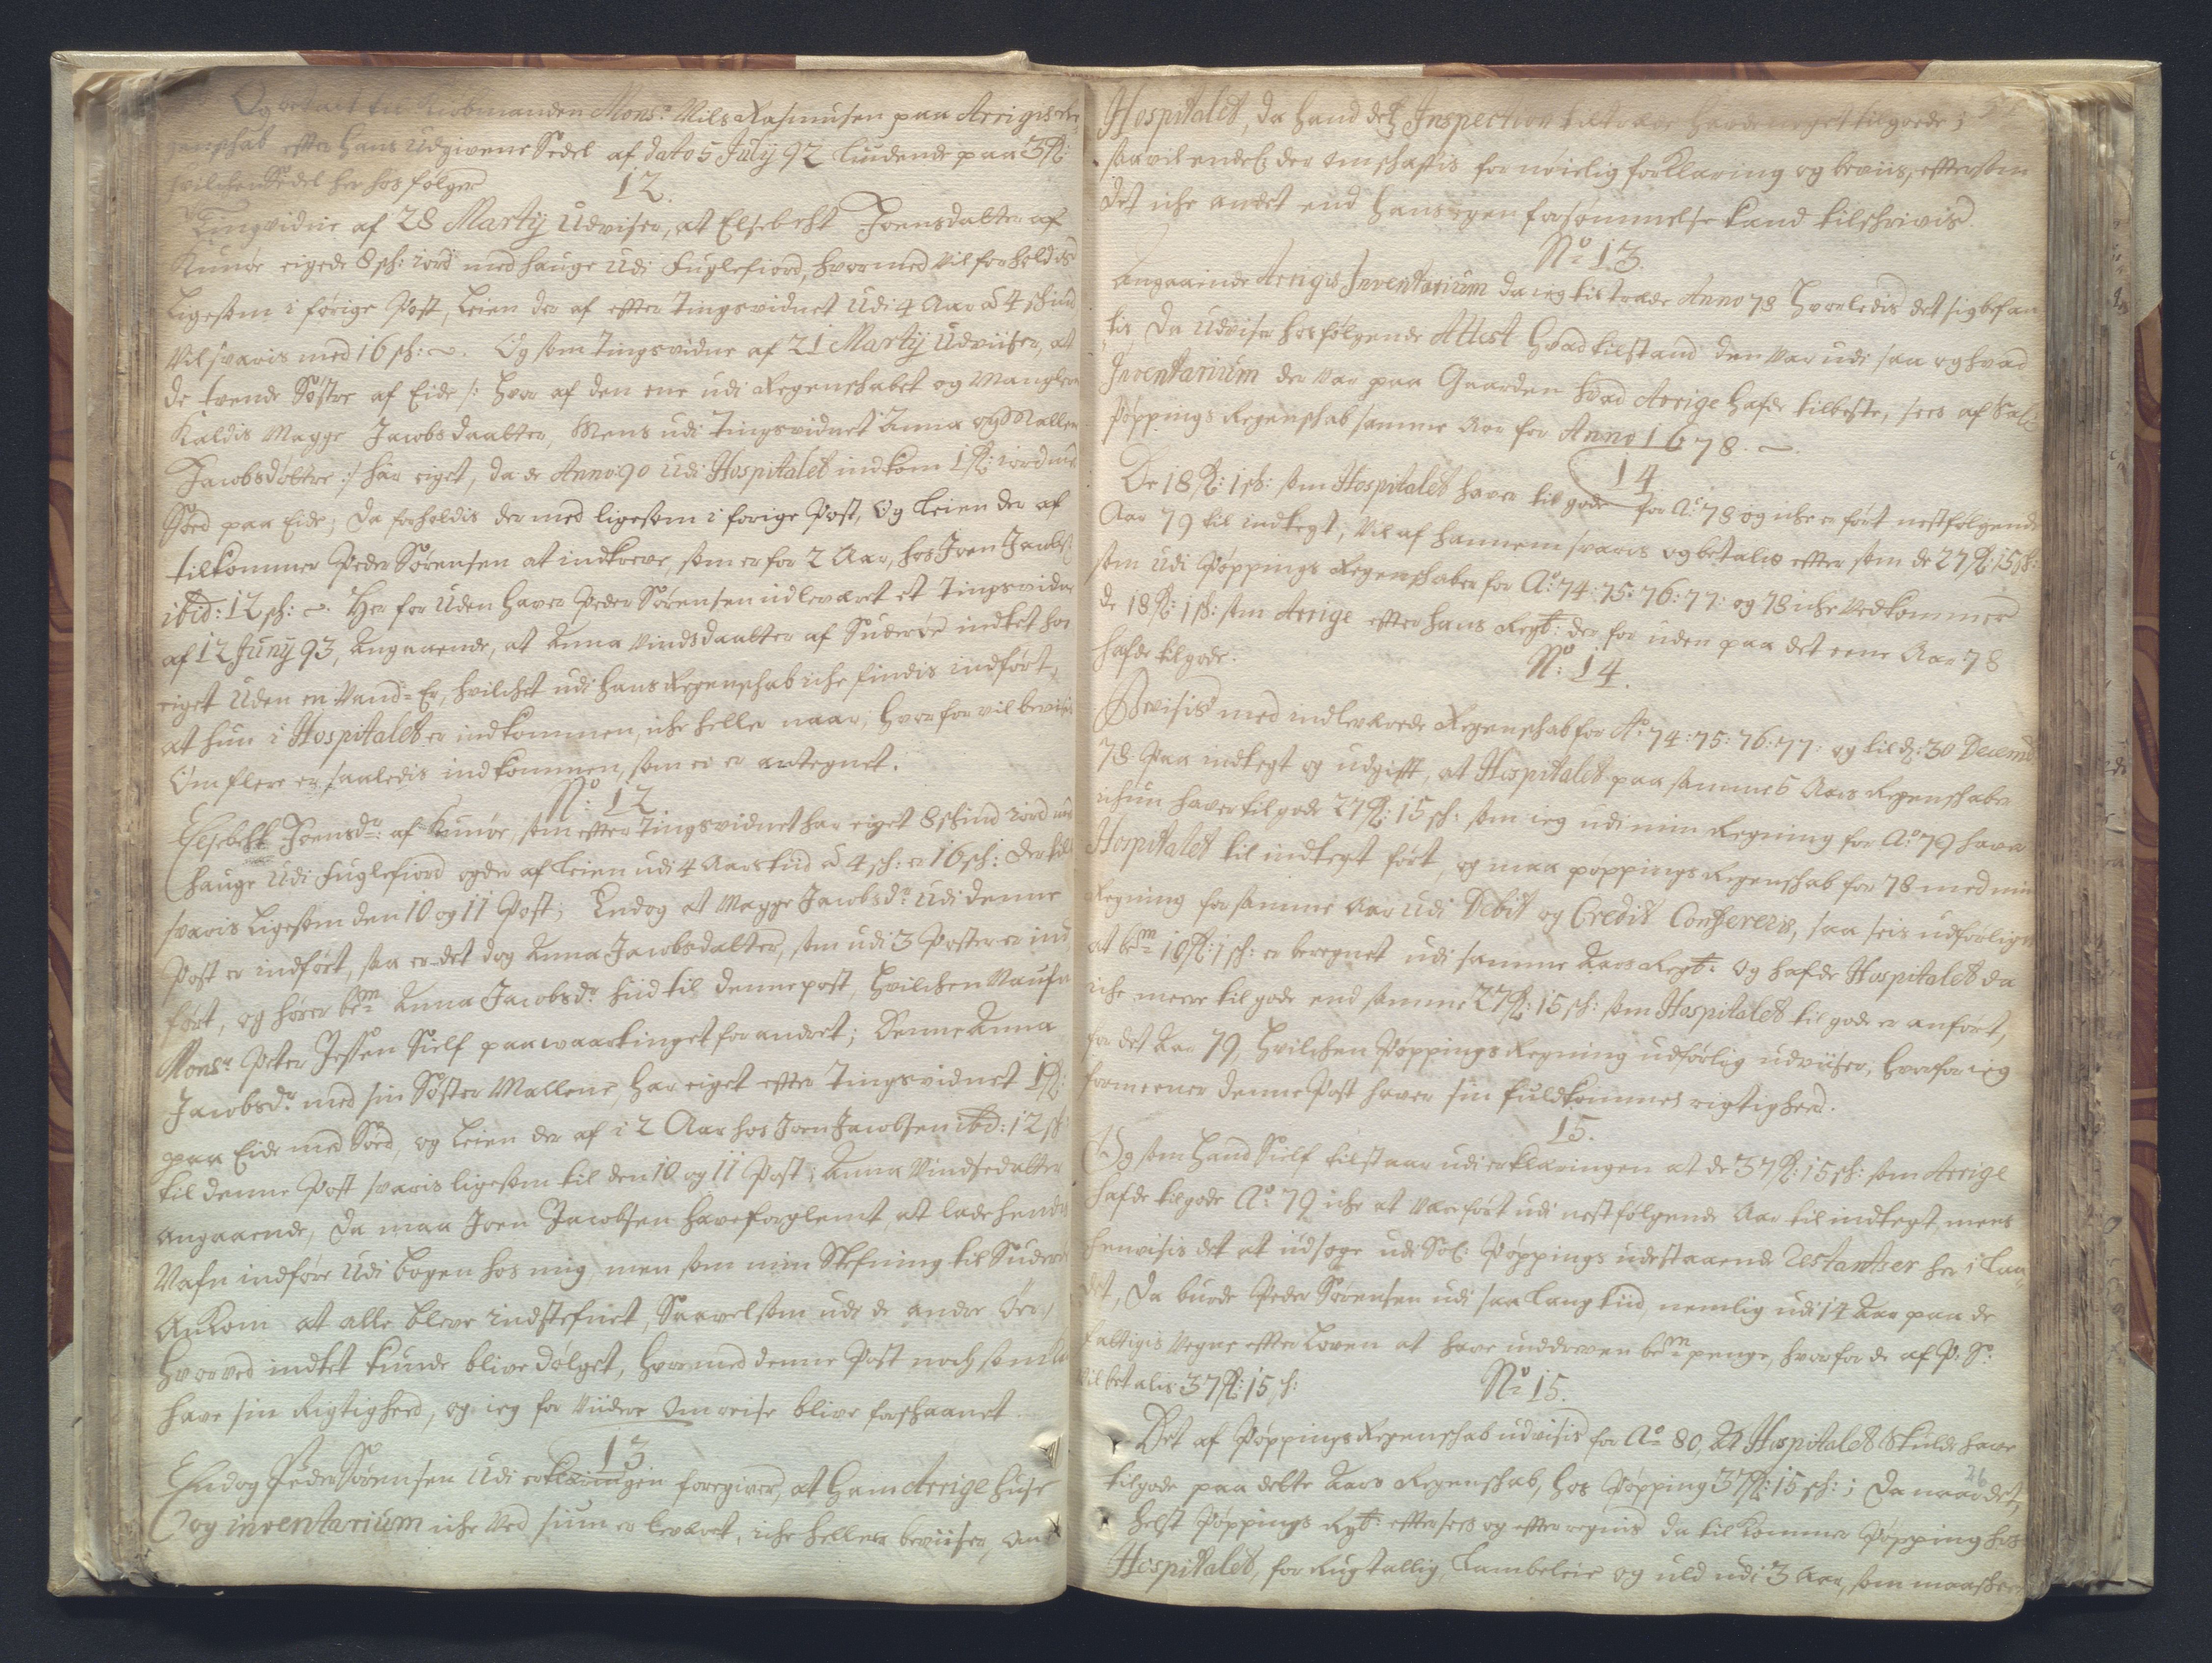 Og betalt til Kiøbmanden Mons: Nils Rasmusen paa Arrigis re
genschab efter hans udgivene Sedel af dato 5 July 92 liudende paa 3 R:
hvilchen Sedel her hos følger
12.
Tingvidne af 28 Martij Udviser, at Elsebeht Joensdatter af
Kunøe eigede 8 sch: iord med hauge udi Fuglefiord, hvormed vil forholdis
ligesom i førige Post, Leien der af efter Tingsvidnet udi 4 Aar à 4 schind
vil svaris med 16 sch: Og som Tingsvidne af 21 Martij Udviiser, at
de tvende Søstre af Eide /: hvor af den ene udi Regenschabet og Manglen
kaldis Magge Jacobsdaatter, Mens udi Tingsvidnet Anna og Mallene
Jacobsdøttre :/ har eiget, da de Anno 90 udi Hospitalet indkom 1 R: iord med
Soed paa Eide; da forholdis der med ligesom i forige Post, Og Leien der af
tilkommer Peder Sørensen at indkreve, som er for 2 Aar, hos Joen Jacobs:
ibid: 12 sch: Her for uden haver Peder Sørensen indleveret et Tingsvidne
af 12 Juny 93, Angaaende, at Anna Vindsdaatter af Suderøe indtet har
eiget uden en Vand-Er, hvilchet udi hans Regenschab iche findis indført,
at hun i Hospitalet er indkommen, iche heller naar; hvorfor vil bevises
om flere er saaledis indkommen, som ei er antegnet.
No: 12
Elsebeht Joensdr: af Kunøe, som efter Tingsvidnet har eiget 8 schind iord med
hauge udi Fuglefiord og der af Leien udi 4 Aars tiid à 4 sch: er 16 sch: der til
svaris ligesom den 10 og 11 Post; Endog at Magge Jacobsdr: udi denne
Post er indført, saa er det dog Anna Jacobsdatter, som udi 3 Poster er ind
ført, og hører bem: Anna Jacobsdr: hid til denne post, hvilchen Naufn
Monsr: Peter Jessen Sielf paa vaartinget forandret; Denne Anna
Jacobsdr: med sin Søster Mallene, har eiget efter Tingsvidnet 1 R:
paa Eide med Soed, og Leien der af i 2 Aar hos Joen Jacobsen ibid: 12 sch:
til denne Post svaris ligesom til den 10 og 11 Post; Anna Vindsedatter
angaaende, da maa Joen Jacobsen have forglemt, at lade hendes
Nafn indføre udi bogen hos mig, men som min Stefning til Suderøe
Ankom at alle bleve indstefnet, Saavelsom udi de andre Øer,
hvorved indtet kunde blive dølget, hvormed denne Post noch som
have sin Rigtighed, og ieg for viidere Umreise blive forschaanet
13
Endog Peder Sørensen udi erklæringen foregiver, at ham Arrige huse
og inventarium iche ved sum er leveret, iche hellers beviiser, om
Hospitalet, da hand det Inspection tiltræde hafde noget tilgoede;
saa vil endel: der omschaffis for nøielig forklaring og beviis, eftersom
det iche andet end hans egen forsømmelse kand tilschrivis.
No: 13.
Angaaende Arrigis Inventarium da ieg tiltræde Anno 78 hvorledis det sig befan
tis, Da Udviser hosfølgende Attest hvad tilstand den var udi saa og hvad
Inventarium der var paa Gaarden hvad Arrige hafde tilbeste, sees af Sal:
Pøppings Regenschab samme Aar for Anno 1678.
14
De 18 R: 1 sch: som Hospitalet haver til gode for Ao: 78 og iche er ført nestfølgende
Aar 79 til indtegt, Vil af hannem svaris og betalis efter som de 27 R: 15 sch:
som udi Pøppings Regenschaber for Ao: 74: 75: 76: 77: og 78 iche vedkommer
de 18 R: 1 sch: som Arrige efter hans Regt: der for uden paa det eene Aar 78
hafde tilgode.
No: 14.
Bevisis med indleverede Regenschab for Ao: 74: 75: 76: 77: og til d: 30 Decemb:
78 Paa indtegt og udgift, at Hospitalet paa samme 5 Aars Regenschaber
ichun haver tilgode 27 R: 15 sch: som ieg udi min Regning for Ao: 79 haver
Hospitalet til indtegt ført, og maa poppings Regenschab for 78 med min
Regning for samme Aar udi Debit og Credit Confereris, saa seis udførligen
at bem: 18 R: 1 sch: er beregnet udi samme Aars Regt: Og hafde Hospitalet da
iche meere til gode end samme 27 R: 15 sch: som Hospitalet til gode er anført,
for det Aar 79, hvilchen Pøppings Regning udførlig udviiser, hvorfor ieg
formeener denne Post haver sin fuldkommen rigtighed.
15.
Og som hand Sielf tilstaar udi erklæringen at de 37 R: 15 sch: som Arrige
hafde tilgode Ao: 79 iche at være ført udi nestfølgende Aar til indtegt, mens
henvisis det at udsøge udi Sal: Pøppings udestaaende Restantser her i Lan
det, Da burde Peder Sørensen udi saa lang tiid, nemlig udi 14 Aar paa de
fattigis Vegne efter Loven at have inddreven bem: penge, hvorfor de af P: S:
vil betalis 37 R: 15 sch:
No: 15.
Det af Pøppings Regenschab udvisis for Ao: 80, at Hospitalet skulde have
26
tilgode paa dette Aars Regenschab, hos Pøpping 37 R: 15 sch:; Da naar det
helst Pøppings Regt: eftersees og efterregnis da tilkommer Pøpping hos
Hospitalet, for Rugtallig, Lambeleie og uld udi 3 Aar, som maaschee